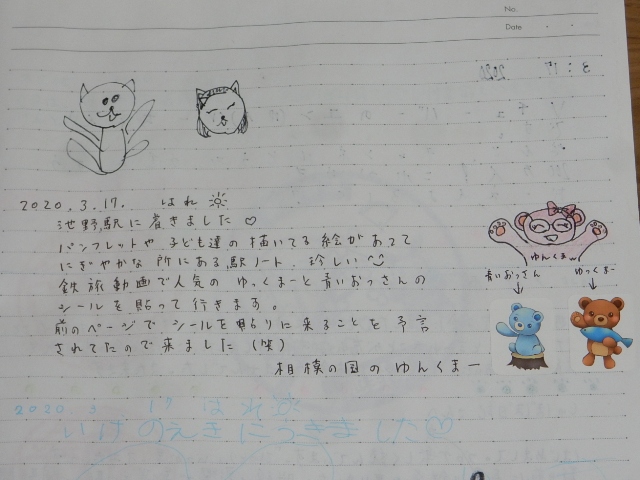 No.
Date
2020.3.17. はれ
池野駅に着きました♡
パンフレットや子ども達の描いてる絵があって
にぎやかな所にある駅ノート 珍しい
鉄旅動画で人気の ゆっくまーと青いおっさんの
シールを貼って行きます。
前のページで シールを貼りに来ることを予言
されてたので来ました(笑)
相模の国のゆんくまー
ゆんくまー
青いおっさん
ゆっくまー
2020 3 17 はれ
いけのえきにつきました♡